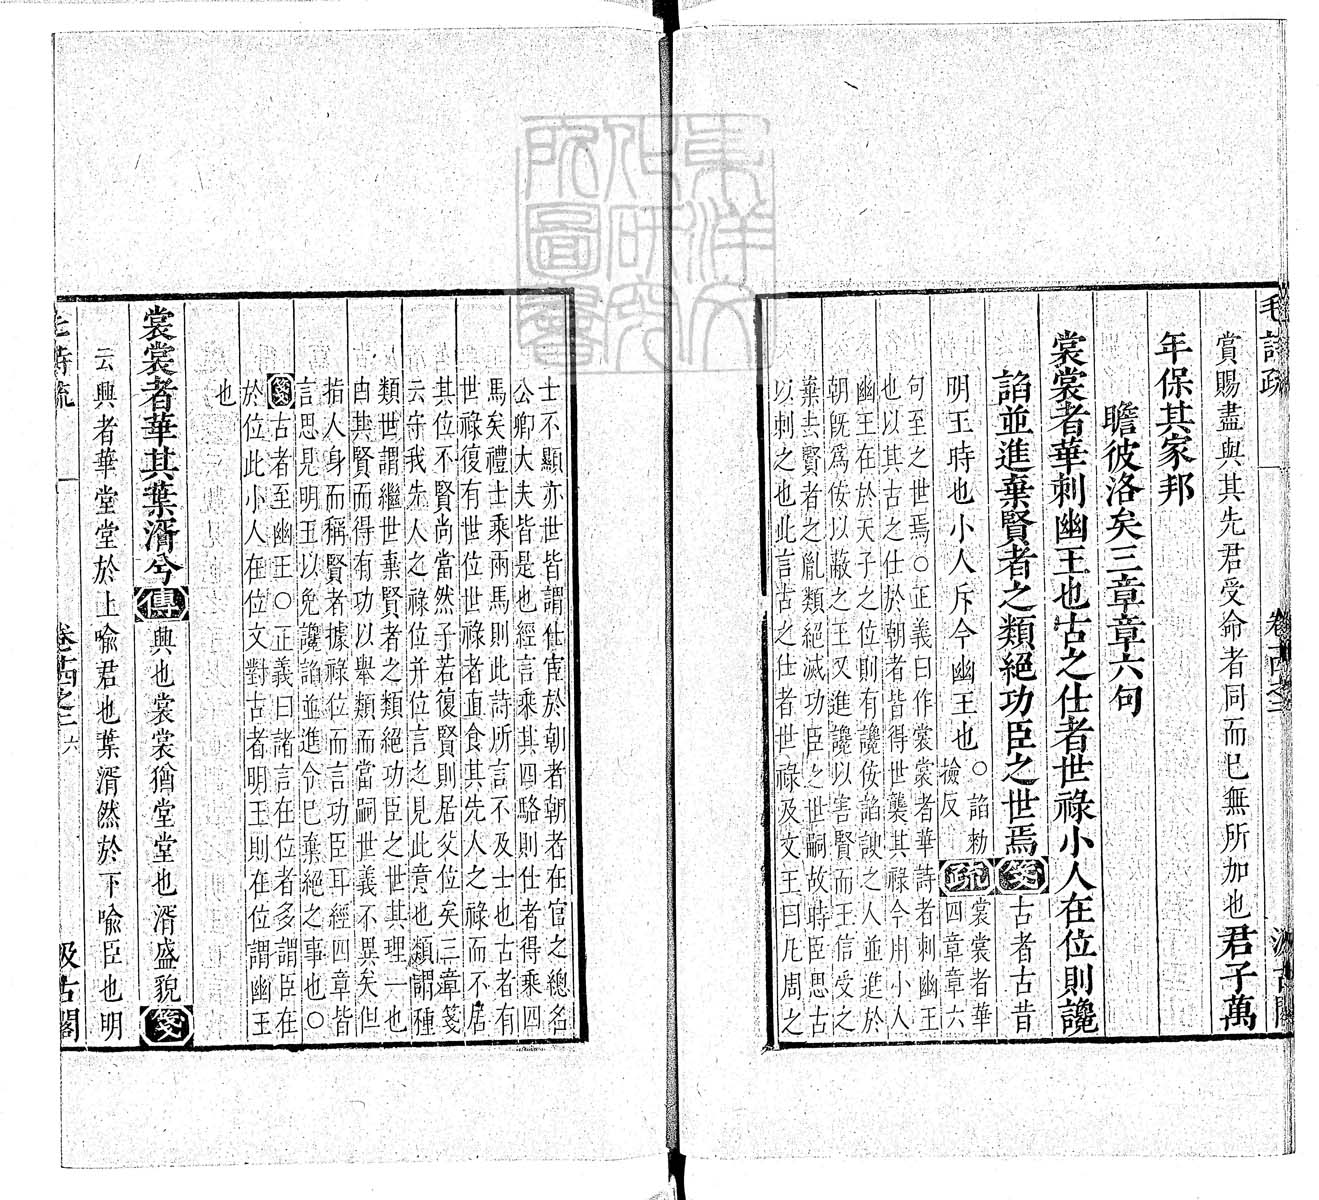 毛詩疏
卷十四之二
汲古閣
賞賜盡與其先君受命者同而已無所加也君子萬
年保其家邦
瞻彼洛矣三章章六句
裳裳者華刺幽王也古之仕者世祿小人在位則讒
諂並進棄賢者之類絕功臣之世焉箋古者古昔
明王時也小人斥今幽王也○諂勑
撿反
疏裳裳者華
四章章六
句至之世焉○正義曰作裳裳者華詩者刺幽王
也以其古之仕於朝者皆得世襲其祿今用小人
幽王在於天子之位則有讒佞諂諛之人並進於
朝旣爲佞以蔽之王又進讒以害賢而王信受之
棄去賢者之胤類絕滅功臣之世嗣故時臣思古
以刺之也此言古之仕者世祿及文王曰凡周之
士不顯亦世皆謂仕宦於朝者朝者在官之總名
公卿大夫皆是也經言乘其四駱則仕者得乘四
馬矣禮士乘兩馬則此詩所言不及士也古者有
世祿復有世位世祿者直食其先人之祿而不居
其位不賢尚當然子若復賢則居父位矣三章箋
云守我先人之祿位并位言之見此意也類謂種
類世謂繼世棄賢者之類絕功臣之世其理一也
由其賢而得有功以舉類而當嗣世義不異矣但
指人身而稱賢者據祿位而言功臣耳經四章皆
言思見明王以免讒諂並進令已棄絕之事也○
箋古者至幽王○正義曰諸言在位者多謂臣在
於位此小人在位文對古者明王則在位謂幽王
也
裳裳者華其葉湑兮傳興也裳裳猶堂堂也湑盛貌箋
云興者華堂堂於上喻君也葉湑然於下喻臣也明
毛詩疏
卷十四之二
六
汲古閣